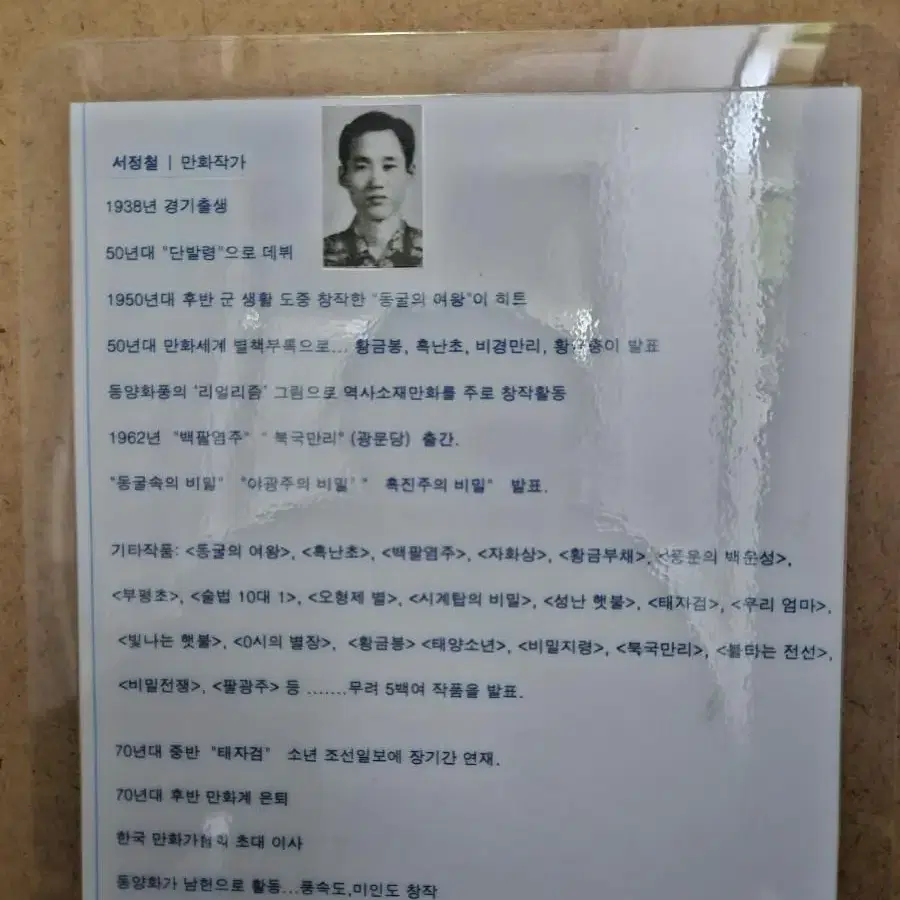 서정철 | 만화작가
1938년 경기출생
50년대 "단발령"으로 데뷔
1950년대 후반 군 생활 도중 창작한 "동굴의 여왕"이 히트
50년대 만화세계 별책부록으로... 황금봉, 흑난초, 비경만리, 발표
동양화풍의 '리얼리즘' 그림으로 역사소재만화를 주로 창작활동
1962년 "백팔염주" " 북국만리" (광문당) 출간.
"동굴속의 비밀" "야광주의 비밀" " 흑진주의 비밀" 발표.
기타작품: <동굴의 여왕>, <흑난초>, <백팔염주>, <자화상>, <황금부채>, <풍운의 백운성>,
<부평초>, <술법 10대 1>, <오형제 별>, <시계탑의 비밀>, <성난 횃불>, <태자검>, <우리 엄마>,
<빛나는 횃불>, <0시의 별장>, <황금봉> <태양소년>, <비밀지령>, <북국만리>, <불타는 전선>,
<비밀전쟁>, <팔광주> 등 .......무려 5백여 작품을 발표.
70년대 중반 "태자검" 소년 조선일보에 장기간 연재.
70년대 후반 만화계 은퇴
한국 만화가협회 초대 이사
동양화가 남헌으로 활동...풍속도,미인도 창작